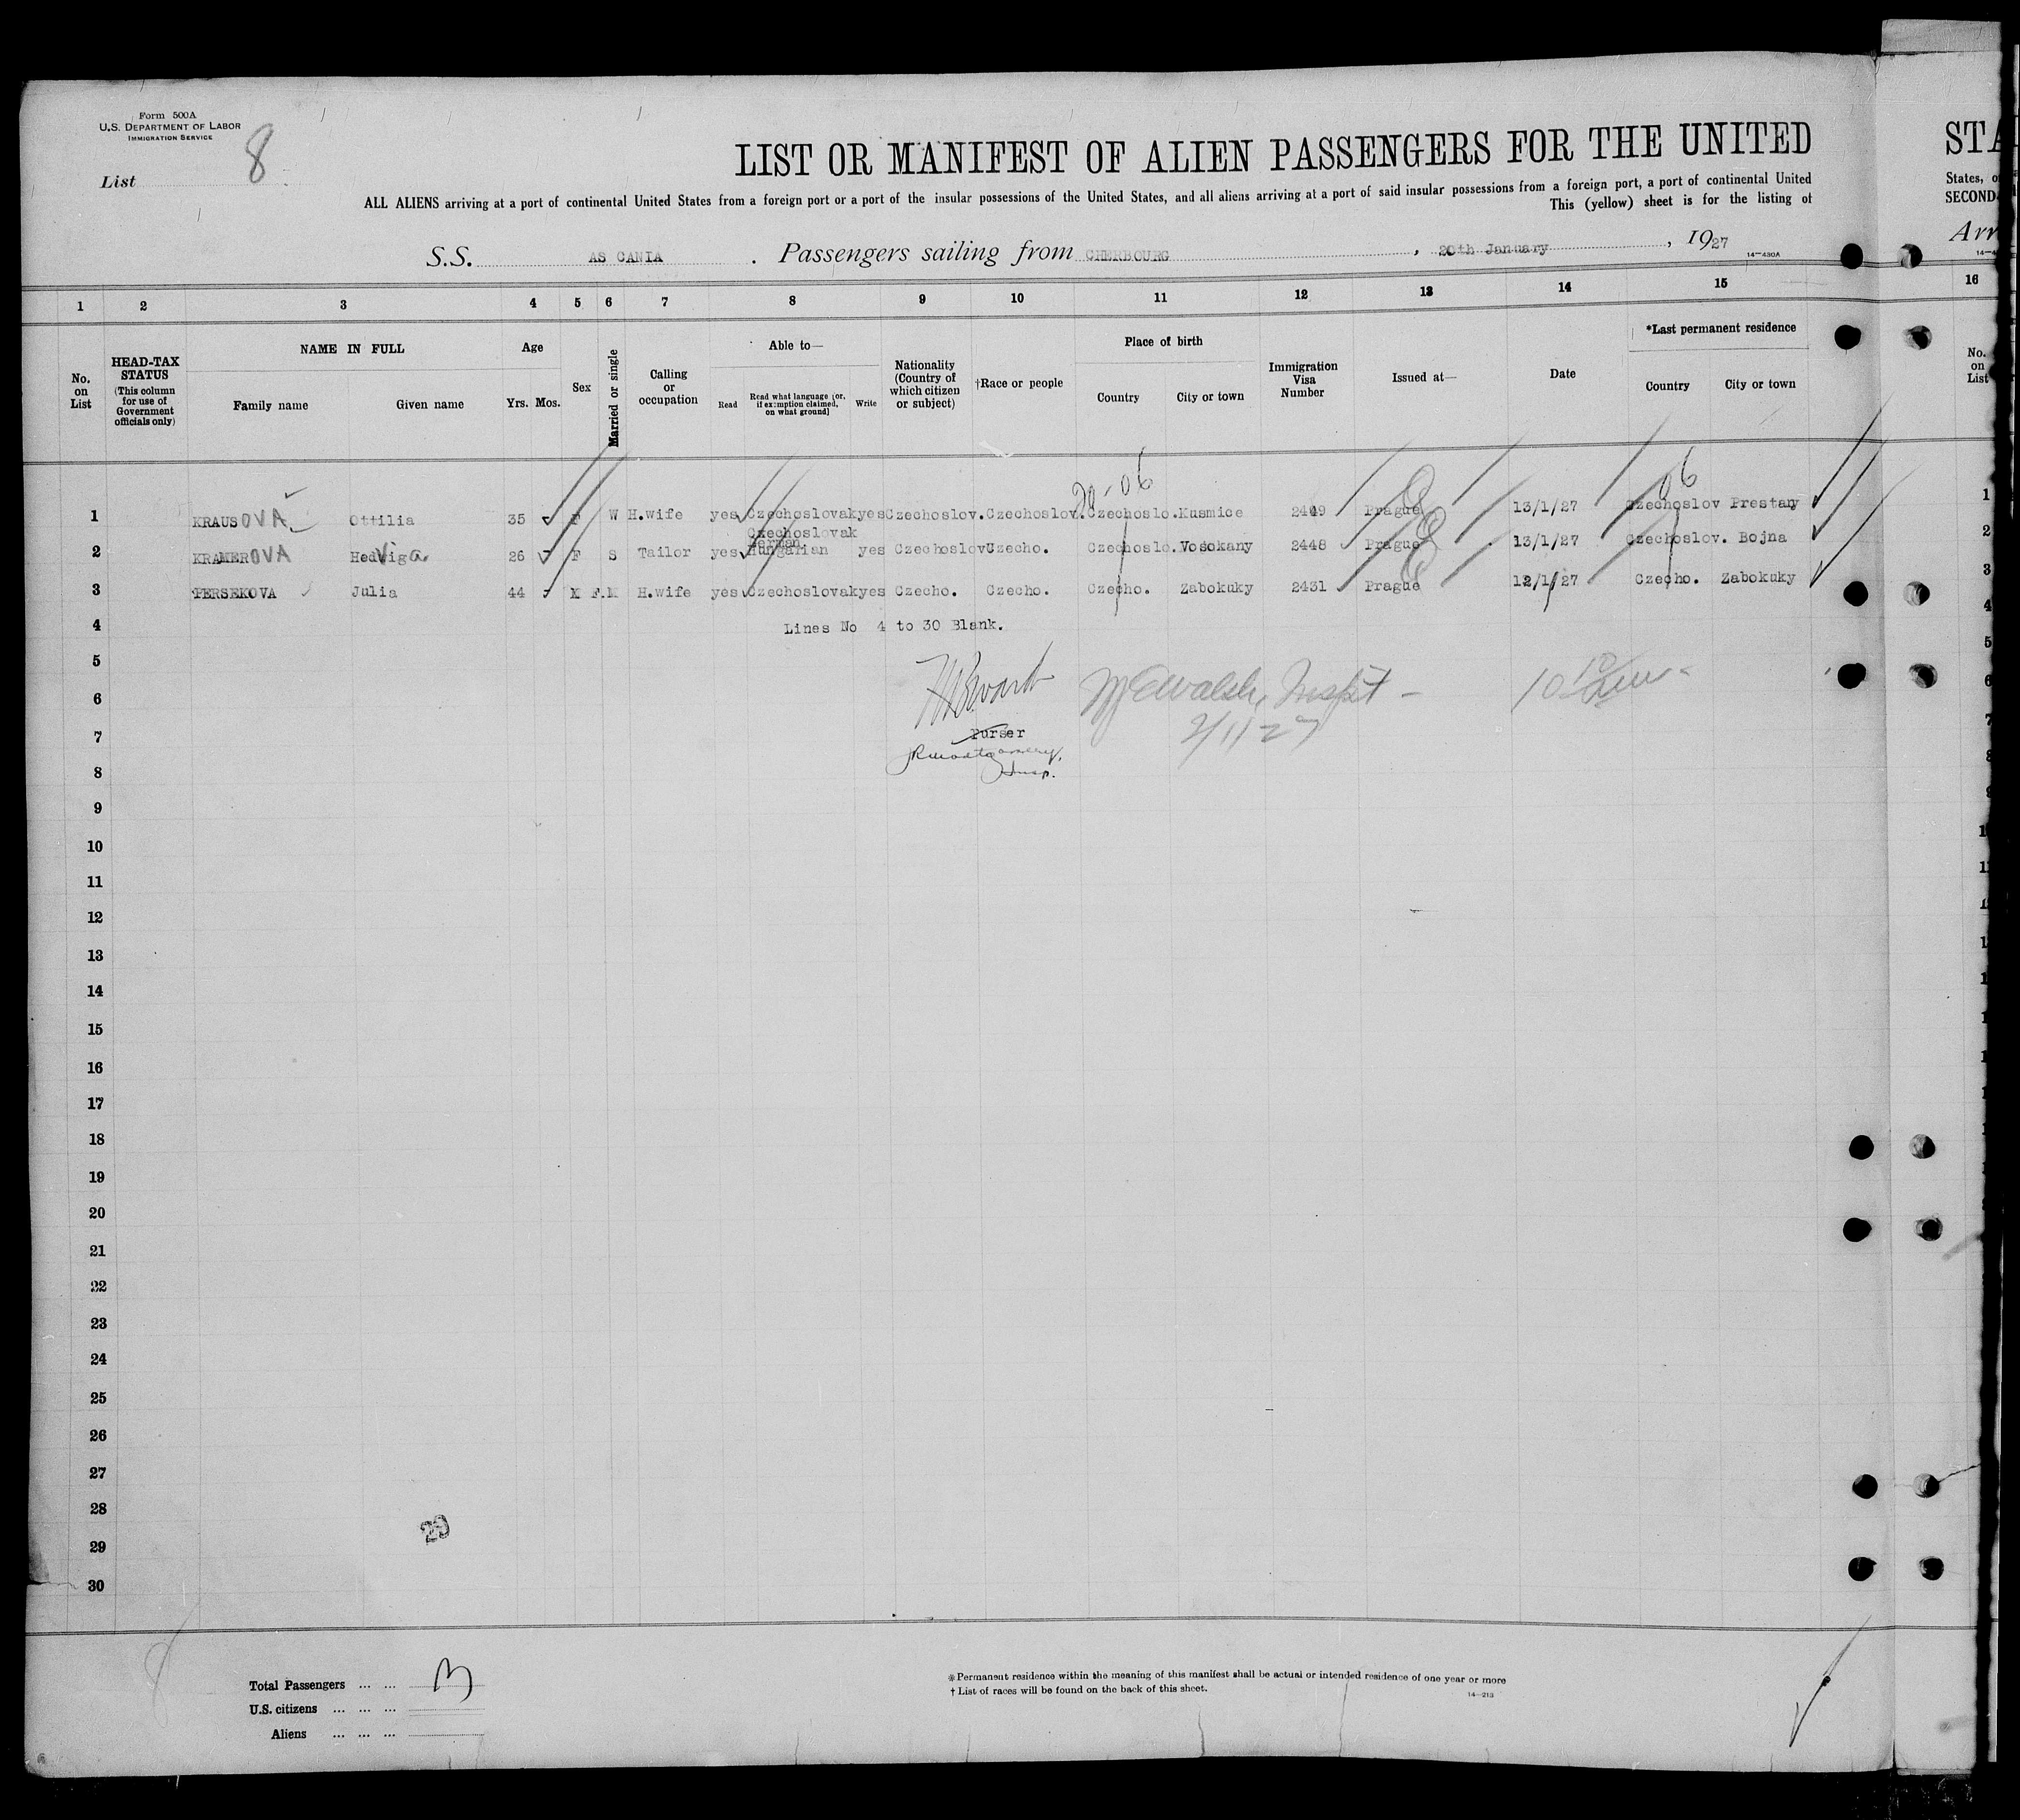 Form 500A
U.S. DEPARTMENT OF LABOR
IMMIGRATION SERVICE
List 8
LIST OR MANIFEST OF ALIEN PASSENGERS FOR THE UNITED
STA
ALL ALIENS arriving at a port of continental United States from a foreign port or a port of the insular possessions of the United States, and all aliens arriving at a port of said insular possessions from a foreign port, a port of continental United
States, o
This (yellow) sheet is for the listing of
SECOND
S.S. AS CANIA . Passengers sailing from CHERBOURG , 20th January , 1927
Arr
14—430A
1 2 3 4 5 6 7 8 9 10 11 12 13 14 15 16
No. on List
HEAD-TAX STATUS (This column for use of Government officials only)
NAME IN FULL
Family name Given name
Age
Yrs. Mos.
Sex
Married or single
Calling or occupation
Able to—
Read Read what language [or, if exemption claimed, on what ground] Write
Nationality (Country of which citizen or subject)
†Race or people
Place of birth
Country City or town
Immigration Visa Number
Issued at—
Date
*Last permanent residence
Country City or town
No. on List
20-06 06
1 KRAUSOVÁ Ottilia 35 F W H.wife yes Czechoslovak yes Czechoslov. Czechoslov. Czechoslo. Kusmice 2449 Prague 13/1/27 Czechoslov Prestany 1
Czechoslovak
German
2 KRAMEROVA Hedviga 26 F S Tailor yes Hungarian yes Czechoslov Czecho. Czechoslo. Vosokany 2448 Prague 13/1/27 Czechoslov. Bojna 2
3 PERSEKOVA Julia 44 X F.M H.wife yes Czechoslovak yes Czecho. Czecho. Czecho. Zabokuky 2431 Prague 12/1/27 Czecho. Zabokuky 3
4 Lines No 4 to 30 Blank. 4
5 5
6 Walsh, Inspt - 6
2/11-27
7 Purser 7
R Montgomery,
8 Insp. 8
9
10
11
12
13
14
15
16
17
18
19
20
21
22
23
24
25
26
27
28
29
29
30
Total Passengers ... ... 3
U.S. citizens ... ... ...
Aliens ... ... ...
*Permanent residence within the meaning of this manifest shall be actual or intended residence of one year or more
† List of races will be found on the back of this sheet.
14—213